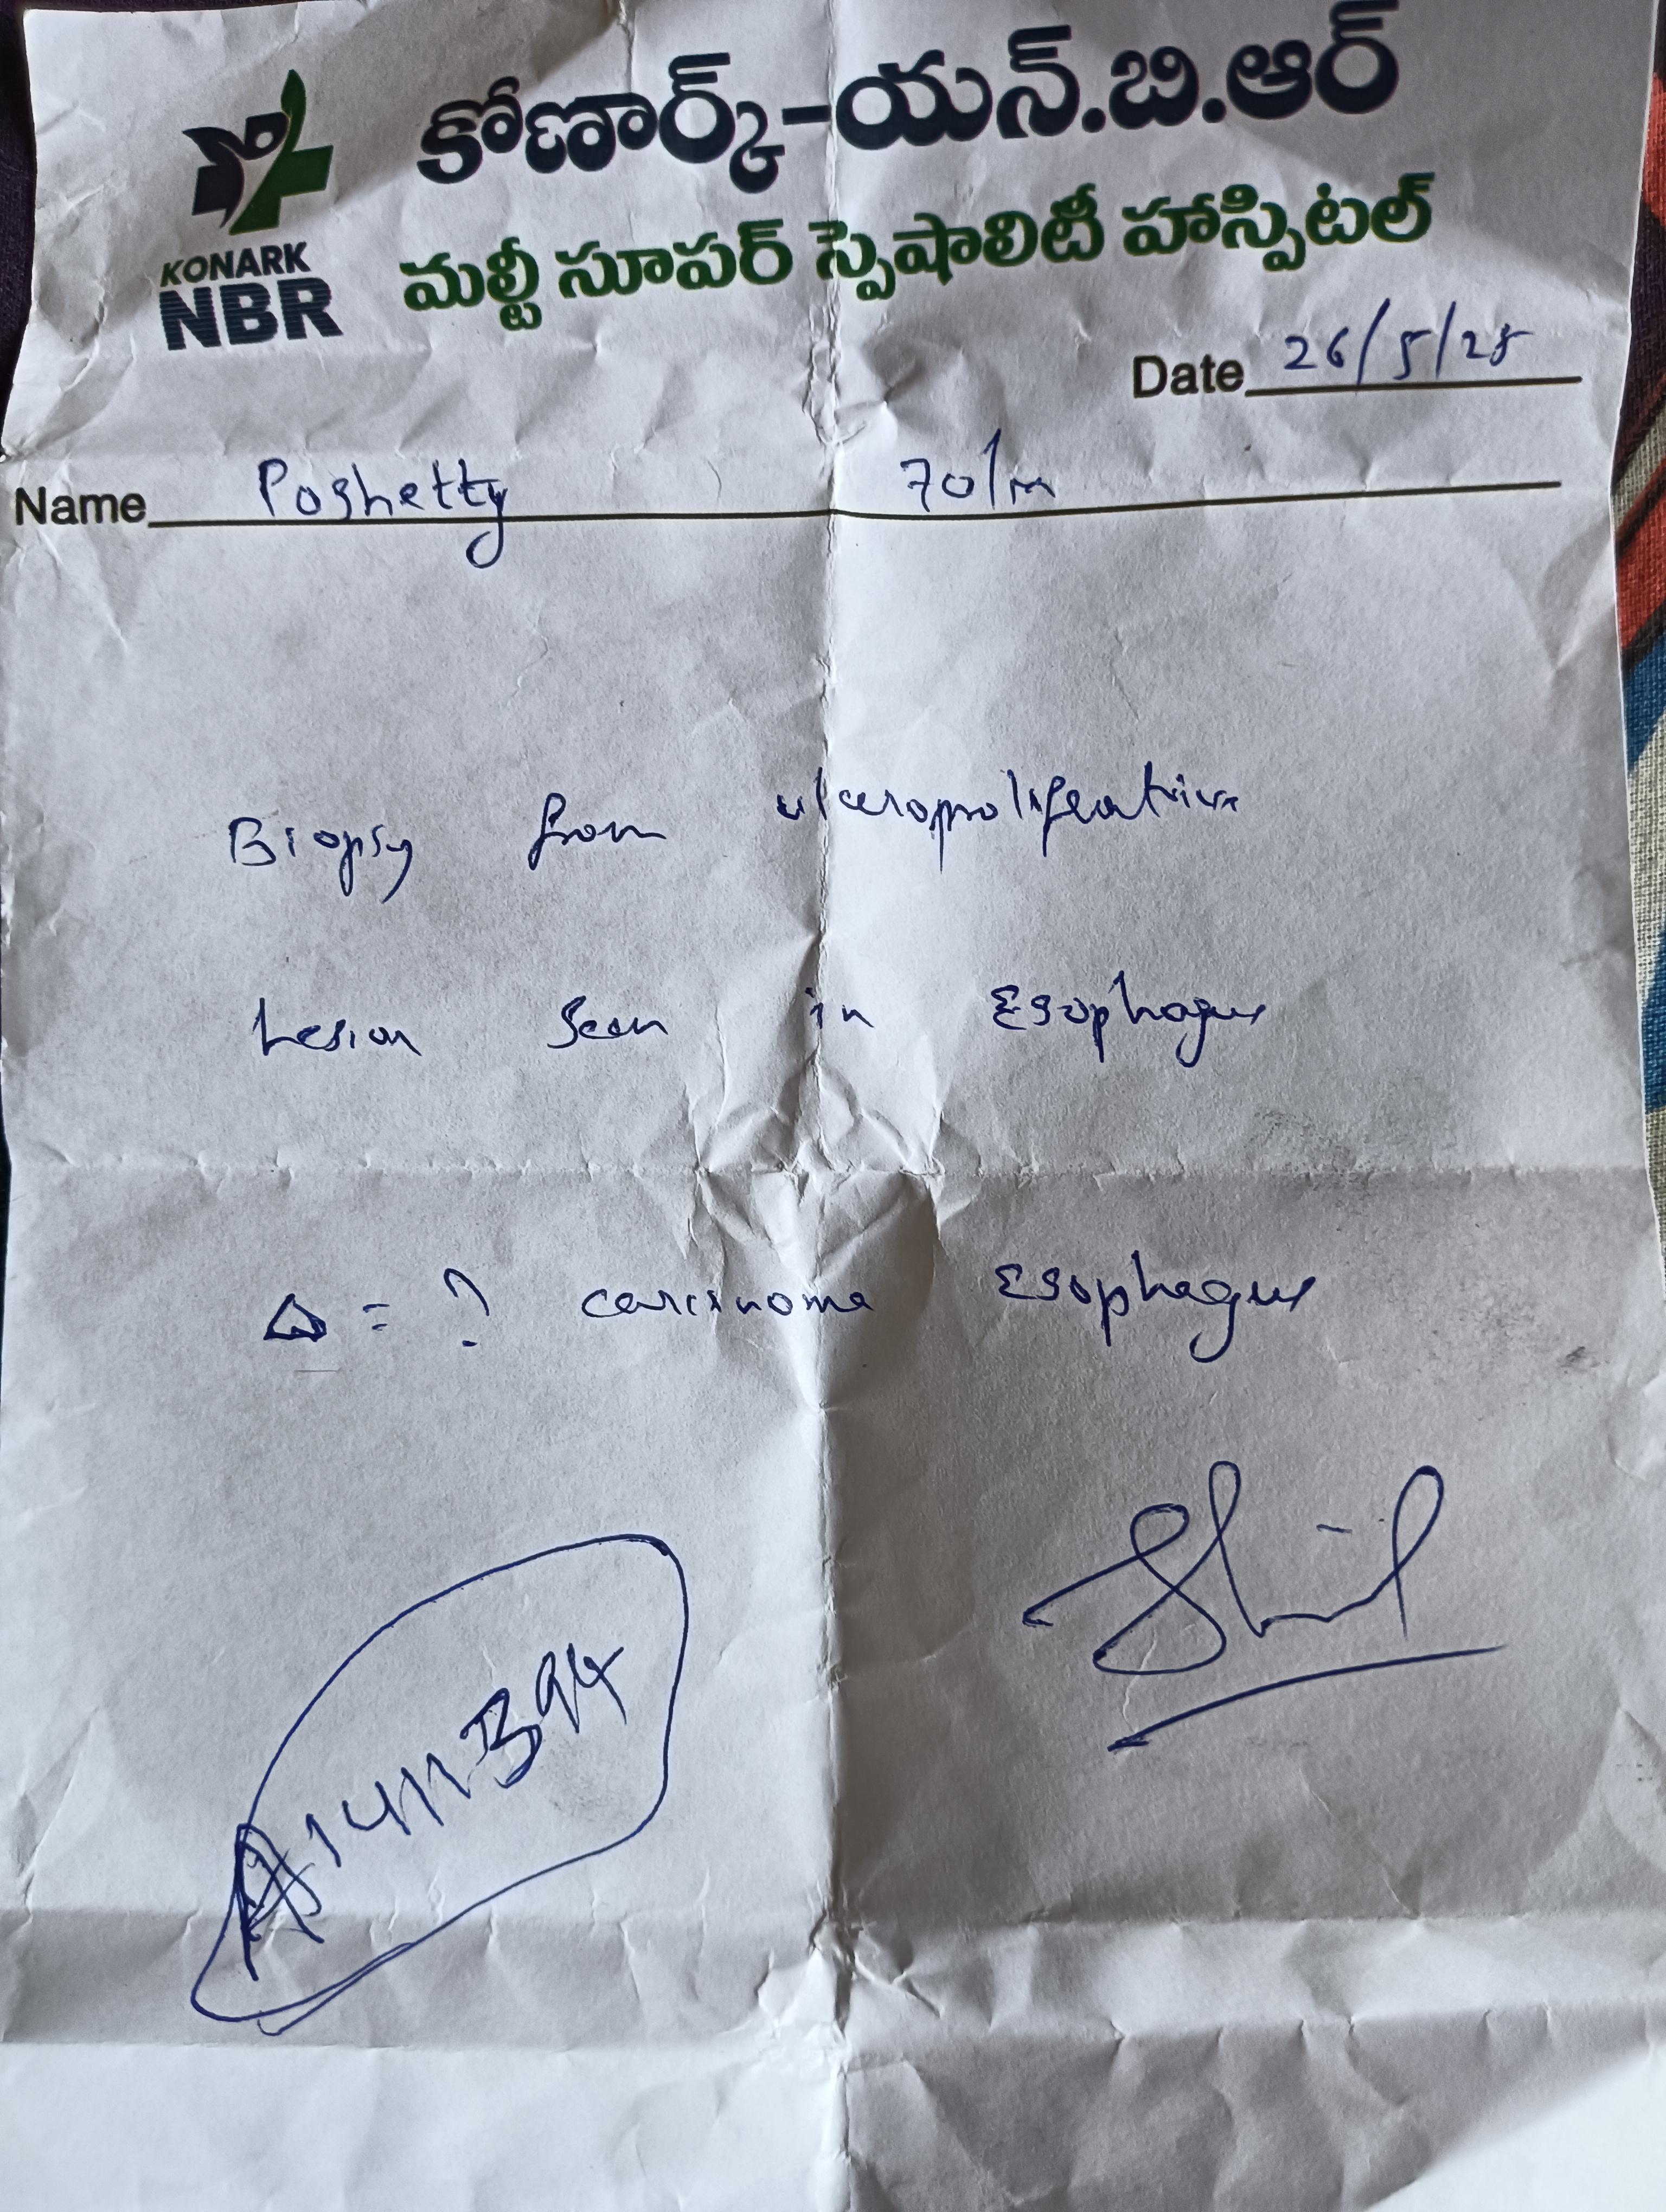 కోణార్క్-యన్.బి.ఆర్
మల్టీ సూపర్ స్పెషాలిటీ హాస్పిటల్
KONARK
NBR
Date 26/5/25
Name Poshetty 70/m
Biopsy from ulceroproliferative
Lesion seen in Esophagus
Δ = ? carcinoma Esophagus